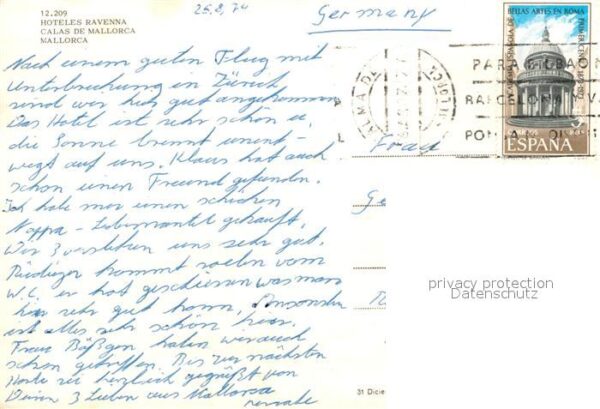 12.209
HOTELES RAVENNA
CALAS DE MALLORCA
MALLORCA
25.2.74
Germany
Nach einem guten Flug mit
Unterbrechung in Zürich
sind wir hier gut angekommen
Das Hotel ist sehr schön u.
die Sonne brennt unent-
wegt auf uns. Klaus hat auch
schon einen Freund gefunden.
Ich habe mir einen schicken
Nappa-Ledermantel gekauft,
Wir 3 verstehen uns sehr gut.
Rüdiger kommt soeben vom
W.C. er hat geschissen was man
hier sehr gut kann. Ansonsten
ist alles sehr schön hier.
Frau haben wir auch
schon getroffen. Bis zur nächsten
Karte sei herzlich gegrüßt von
Deinen 3 Lieben aus Mallorca
Frau
BELLAS ARTES EN ROMA
ESPAÑA
PALMA DE
PARA
BARCELONA
31 Dicie
privacy protection
Datenschutz